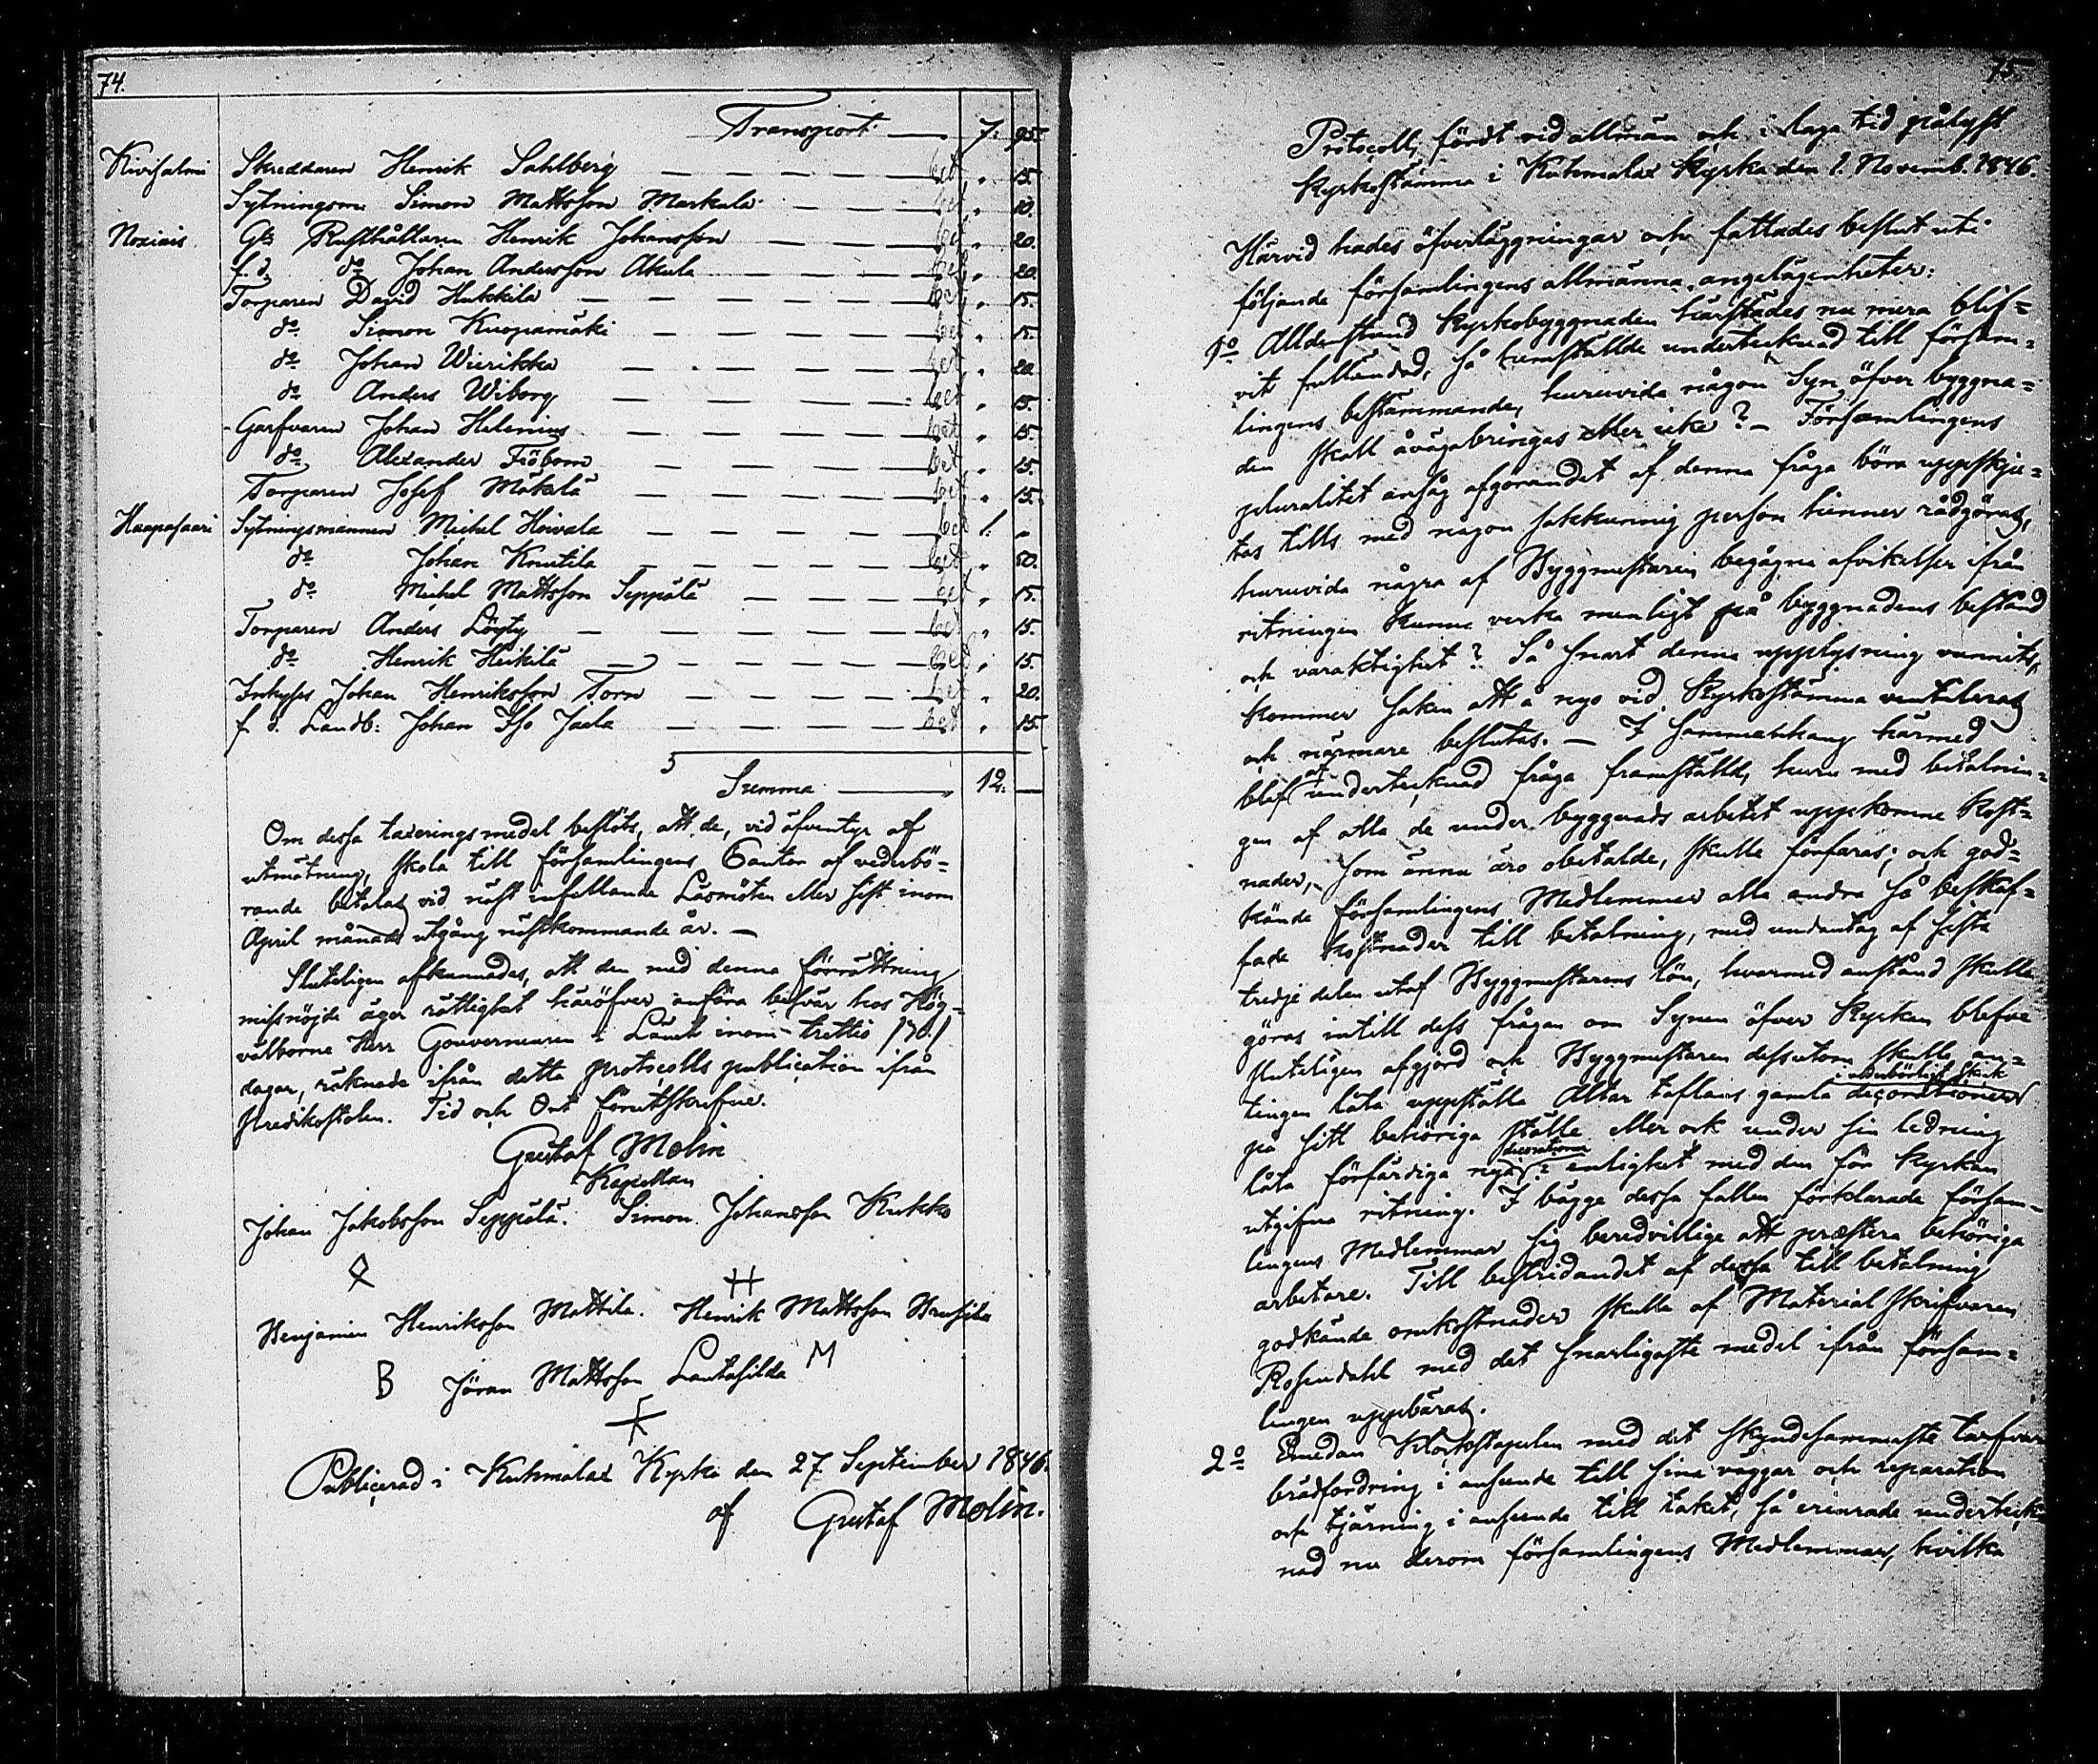 74.
Transport 7. 95.
Kivisalmi Skreddaren Henrik Sahlberg bet „ 15.
Sytningsm: Simon Mattsson Markula bet „ 10.
Noxiais Gl: Rusthållaren Henrik Johansson bet „ 20.
f. d. do Johan Andersson Akula bet „ 20.
Torparen David Hukkila bet „ 15.
do Simon Kuopamäki bet „ 15.
do Johan Wierikka bet „ 20.
do Anders Wiborg bet „ 15.
Garfvaren Johan Helenius bet „ 15.
do Alexander Fiöbom bet „ 15.
Torparen Josef Mäkelä bet „ 15.
Haapasaari Sytningsmannen Michel Hoivala bet 1. „
do Johan Knutila bet „ 50.
do Michel Mattsson Seppälä bet „ 15.
Torparen Anders Löyty bet „ 15.
do Henrik Heikilä bet „ 15.
Inhyses Johan Henriksson Torn bet „ 20.
f. d. Landb: Johan Iso Jaala bet „ 15.
Summa 12. —
Om dessa taxeringsmedel beslöts, att de, vid äfventyr af
utmätning, skola till församlingens Cantor af vederbö-
rande betalas vid näst infallande Läsmöten eller sist inom
April månads utgång nästkommande år. —
Sluteligen afkunnades, att den med denna förrättning
missnöjde äger rättighet häröfver anföra besvär hos Hög-
välborne Herr Gouverneuren i Länet inom trettio /30./
dagar, räknade ifrån detta protocolls publication ifrån
Predikostolen. Tid och Ort förutskrefne.
Gustaf Molin
Kapellan
Johan Jakobsson Seppälä. Simon Johansson Kukko
Benjamin Henriksson Mattila. Henrik Mattsson Husila
B Jöran Mattsson Lautasilda M
Publicerad i Kuhmalax Kyrka den 27 September 1846.
af Gustaf Molin.
75.
Protocoll, fördt vid allmän och i laga tid pålyst
Kyrkostämma i Kuhmalax Kyrka den 1. Novemb. 1846.
Härvid hades öfverläggningar och fattades beslut uti
följande församlingens allmänna angelägenheter:
1o Alldenstund Kyrkobyggnaden härstädes nu mera blif-
vit fulländad, så hemställde undertecknad till försam-
lingens bestämmande, huruvida någon Syn öfver byggna-
den skall åvägabringas eller icke? — Församlingens
pluralitet ansåg afgörandet af denna fråga böra uppskju-
tas tills med någon sakkunnig person hinner rådgöras,
huruvida några af Byggmästaren begågne afvikelser ifrån
ritningen kunna verka menligt på byggnadens bestånd
och varaktighet? Så snart denna upplysning vunnits,
kommer saken att å nyo vid Kyrkostämma ventileras
och närmare beslutas. — I sammanhang härmed
blef af undertecknad fråga framställd, huru med betalnin-
gen af alla de under byggnads arbetet uppkomne kost-
nader, som ännu äro obetalde, skulle förfaras; och god-
kände församlingens Medlemmar alla andra så beskaf-
fade kostnader till betalning, med undantag af sista
tredje delen utaf Byggmästarens lön, hvarmed anstånd skulle
göras intill dess frågan om Synen öfver Kyrkan blefve
sluteligen afgjord och Byggmästaren dessutom skulle an-
tingen låta uppställa Altar taflans gamla decorationer i vederbörligt skick
på sitt behöriga ställe eller ock under sin ledning
låta förfärdiga nya decorationer i enlighet med den för Kyrkan
utgifne ritning. I bägge dessa fallen förklarade försam-
lingens Medlemmar sig beredvillige att præstera behöriga
arbetare. Till bestridandet af dessa till betalning
godkände omkostnader skulle af Materialskrifvaren
Rosendahl med det snarligaste medel ifrån försam-
lingen uppbäras.
2o Emedan Klockstapeln med det skyndsammaste tarfvar
brädfordring i anseende till sina väggar och reparation
och tjärning i anseende till taket, så erinrade underteck-
nad nu derom församlingens Medlemmar, hvilka